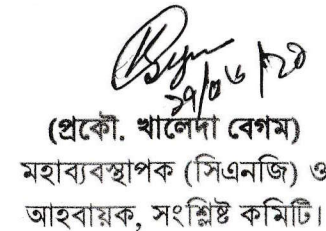 ২৯/০৬/২০
(প্রকৌ. খালেদা বেগম)
মহাব্যবস্থাপক (সিএনজি) ও
আহবায়ক, সংশ্লিষ্ট কমিটি।